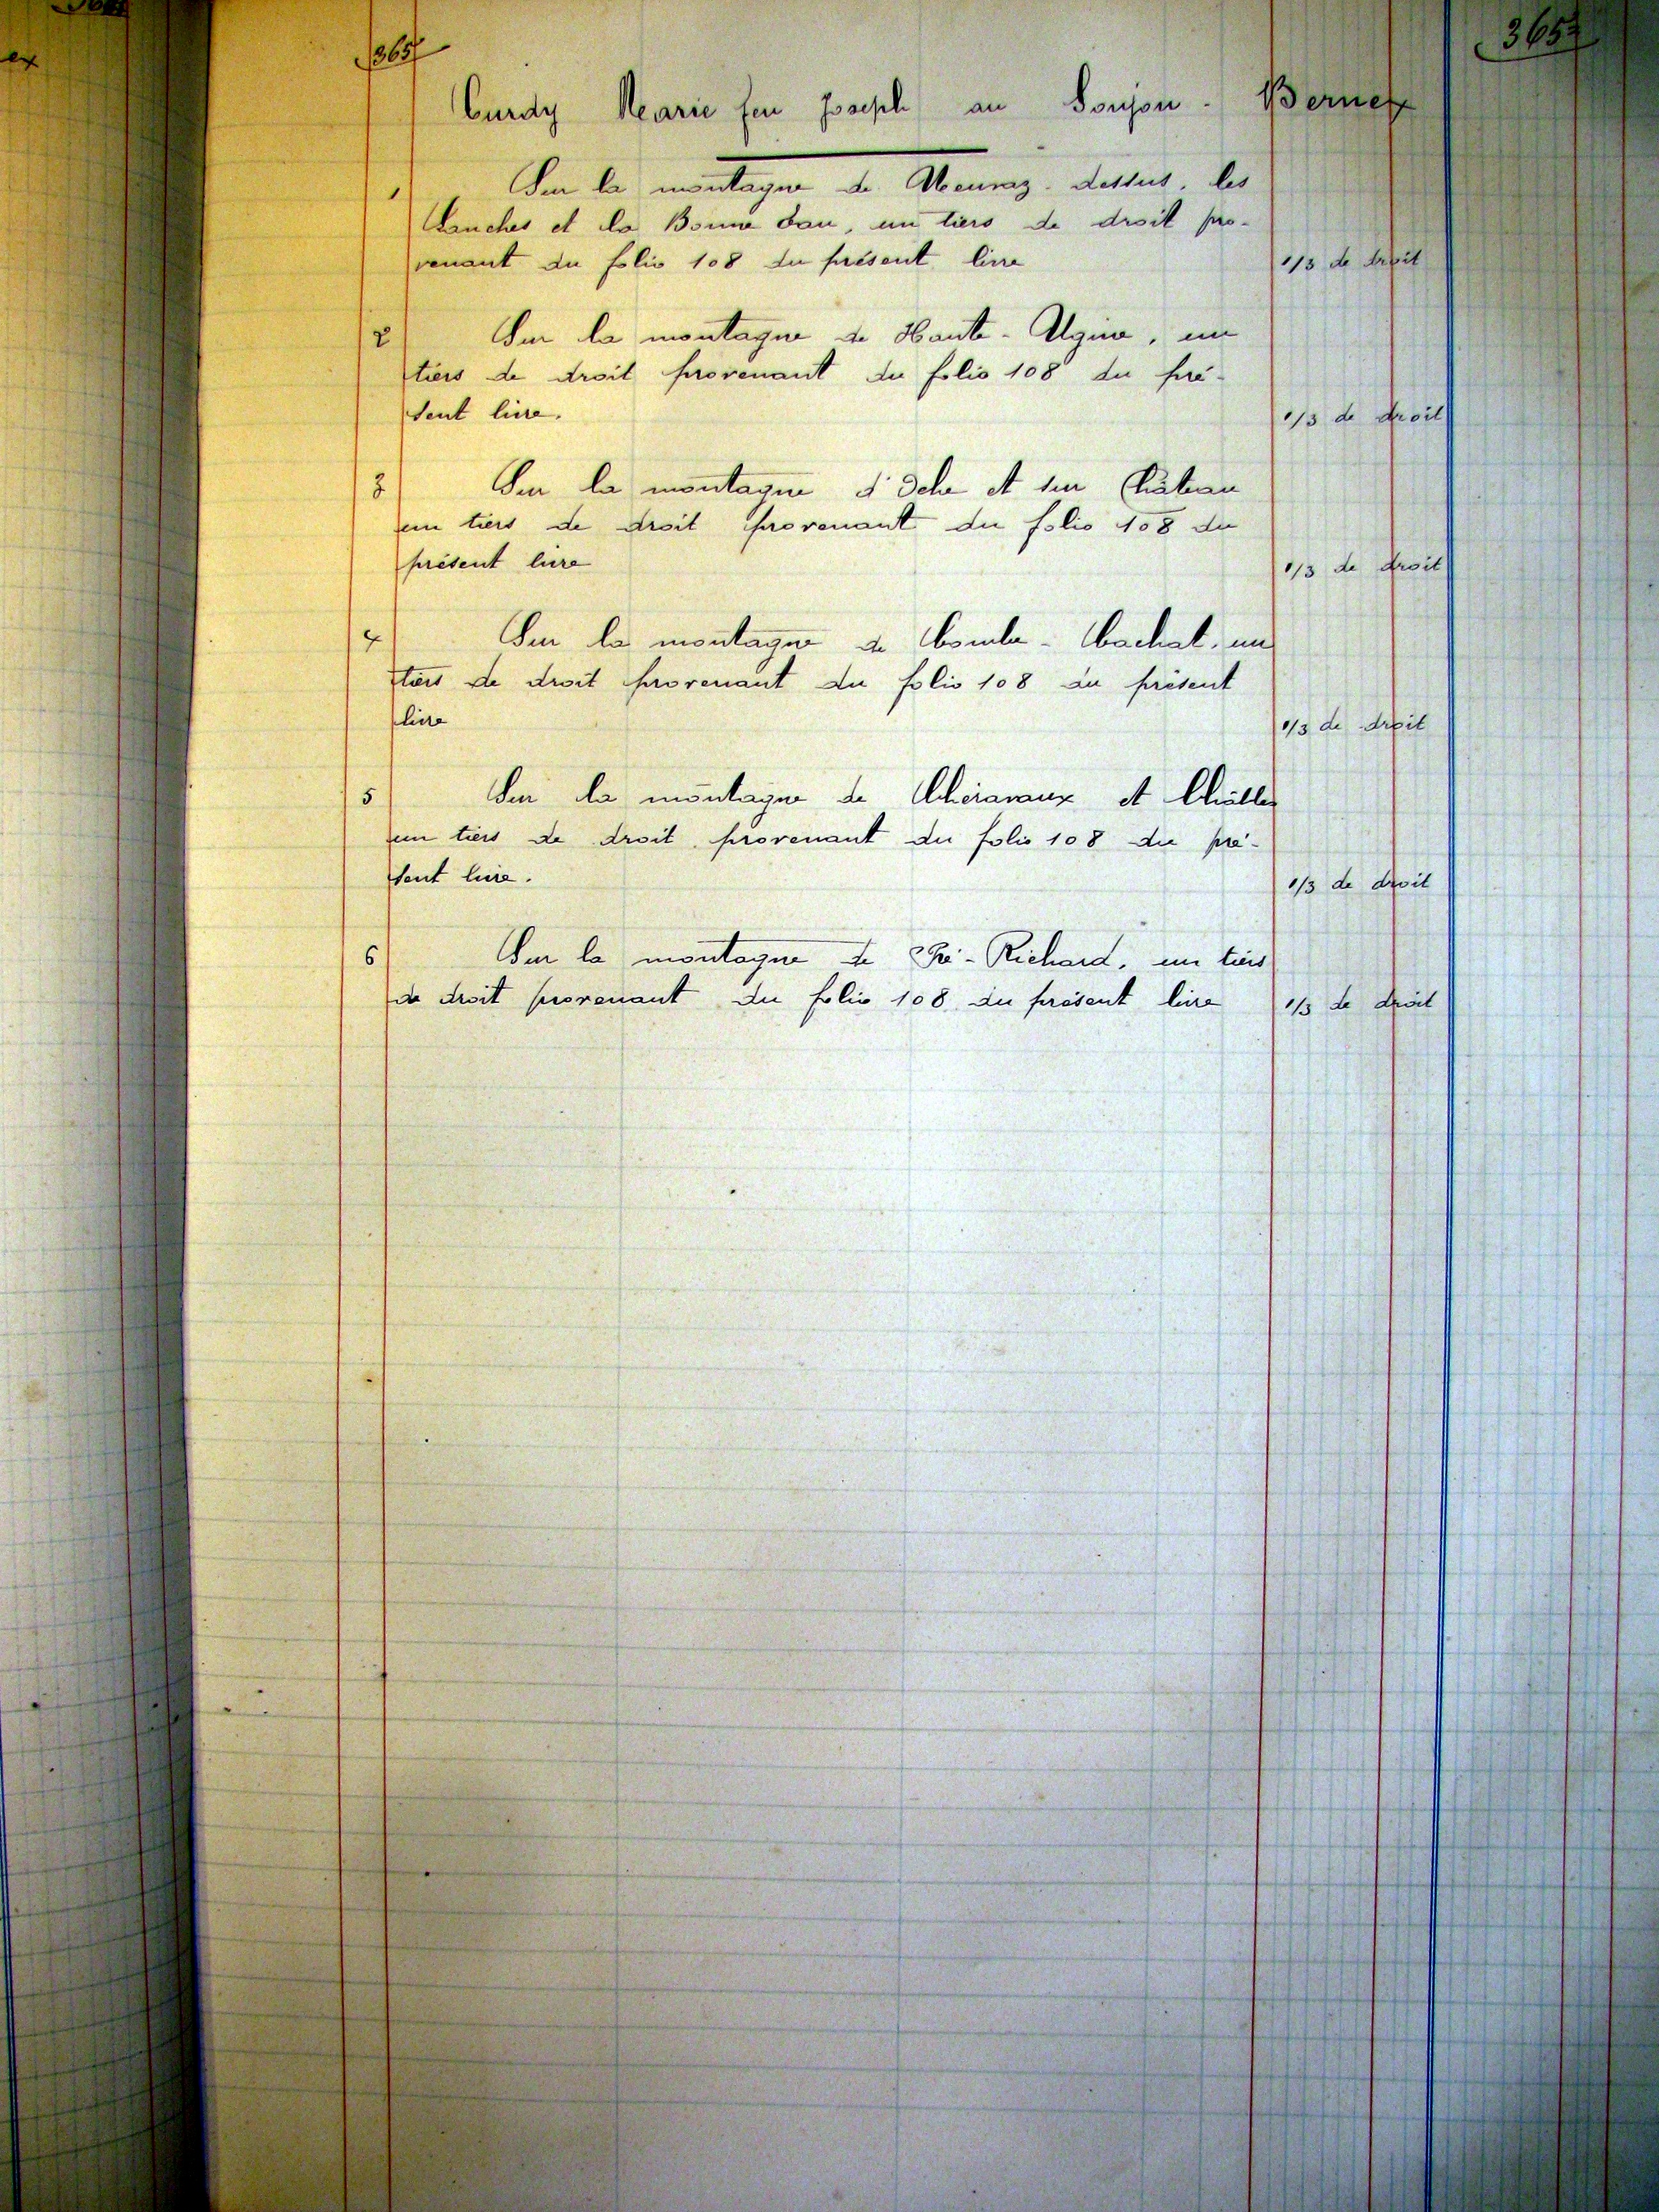 365
365
Curdy Marie feu Joseph au Sonjon - Bernex
1 Sur la montagne de Meuraz-dessus, les
Lanches et la Bonne Eau, un tiers de droit pro-
venant du folio 108 du présent livre 1/3 de droit
2 Sur la montagne de Haute-Ugine, un
tiers de droit provenant du folio 108 du pré-
sent livre. 1/3 de droit
3 Sur la montagne d'Oche et sur Château
un tiers de droit provenant du folio 108 du
présent livre 1/3 de droit
4 Sur la montagne de Combe-Bachat, un
tiers de droit provenant du folio 108 du présent
livre 1/3 de droit
5 Sur la montagne de et
un tiers de droit provenant du folio 108 du pré-
sent livre. 1/3 de droit
6 Sur la montagne de Pré-Richard, un tiers
de droit provenant du folio 108 du présent livre 1/3 de droit